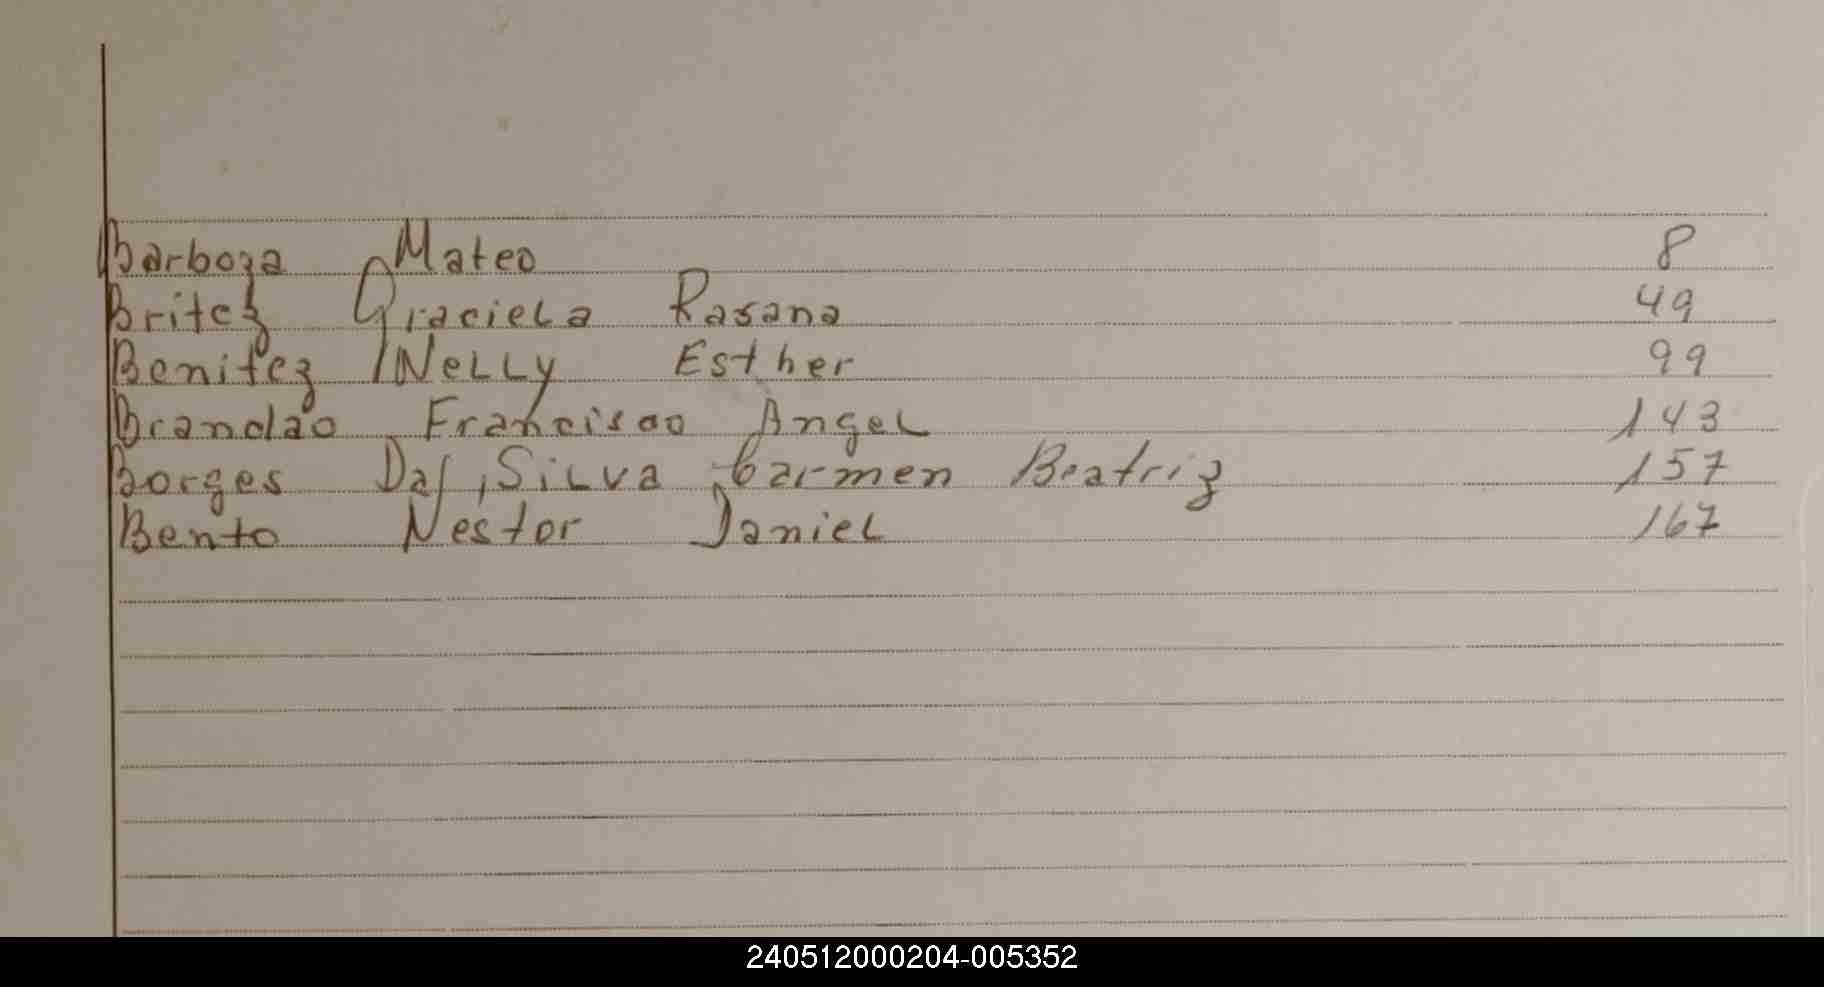 Barboza Mateo 8
Britez Graciela Rasana 49
Benitez Nelly Esther 99
Brandao Francisco Angel 143
Borges Da Silva Carmen Beatriz 157
Bento Nestor Daniel 167
240512000204-005352